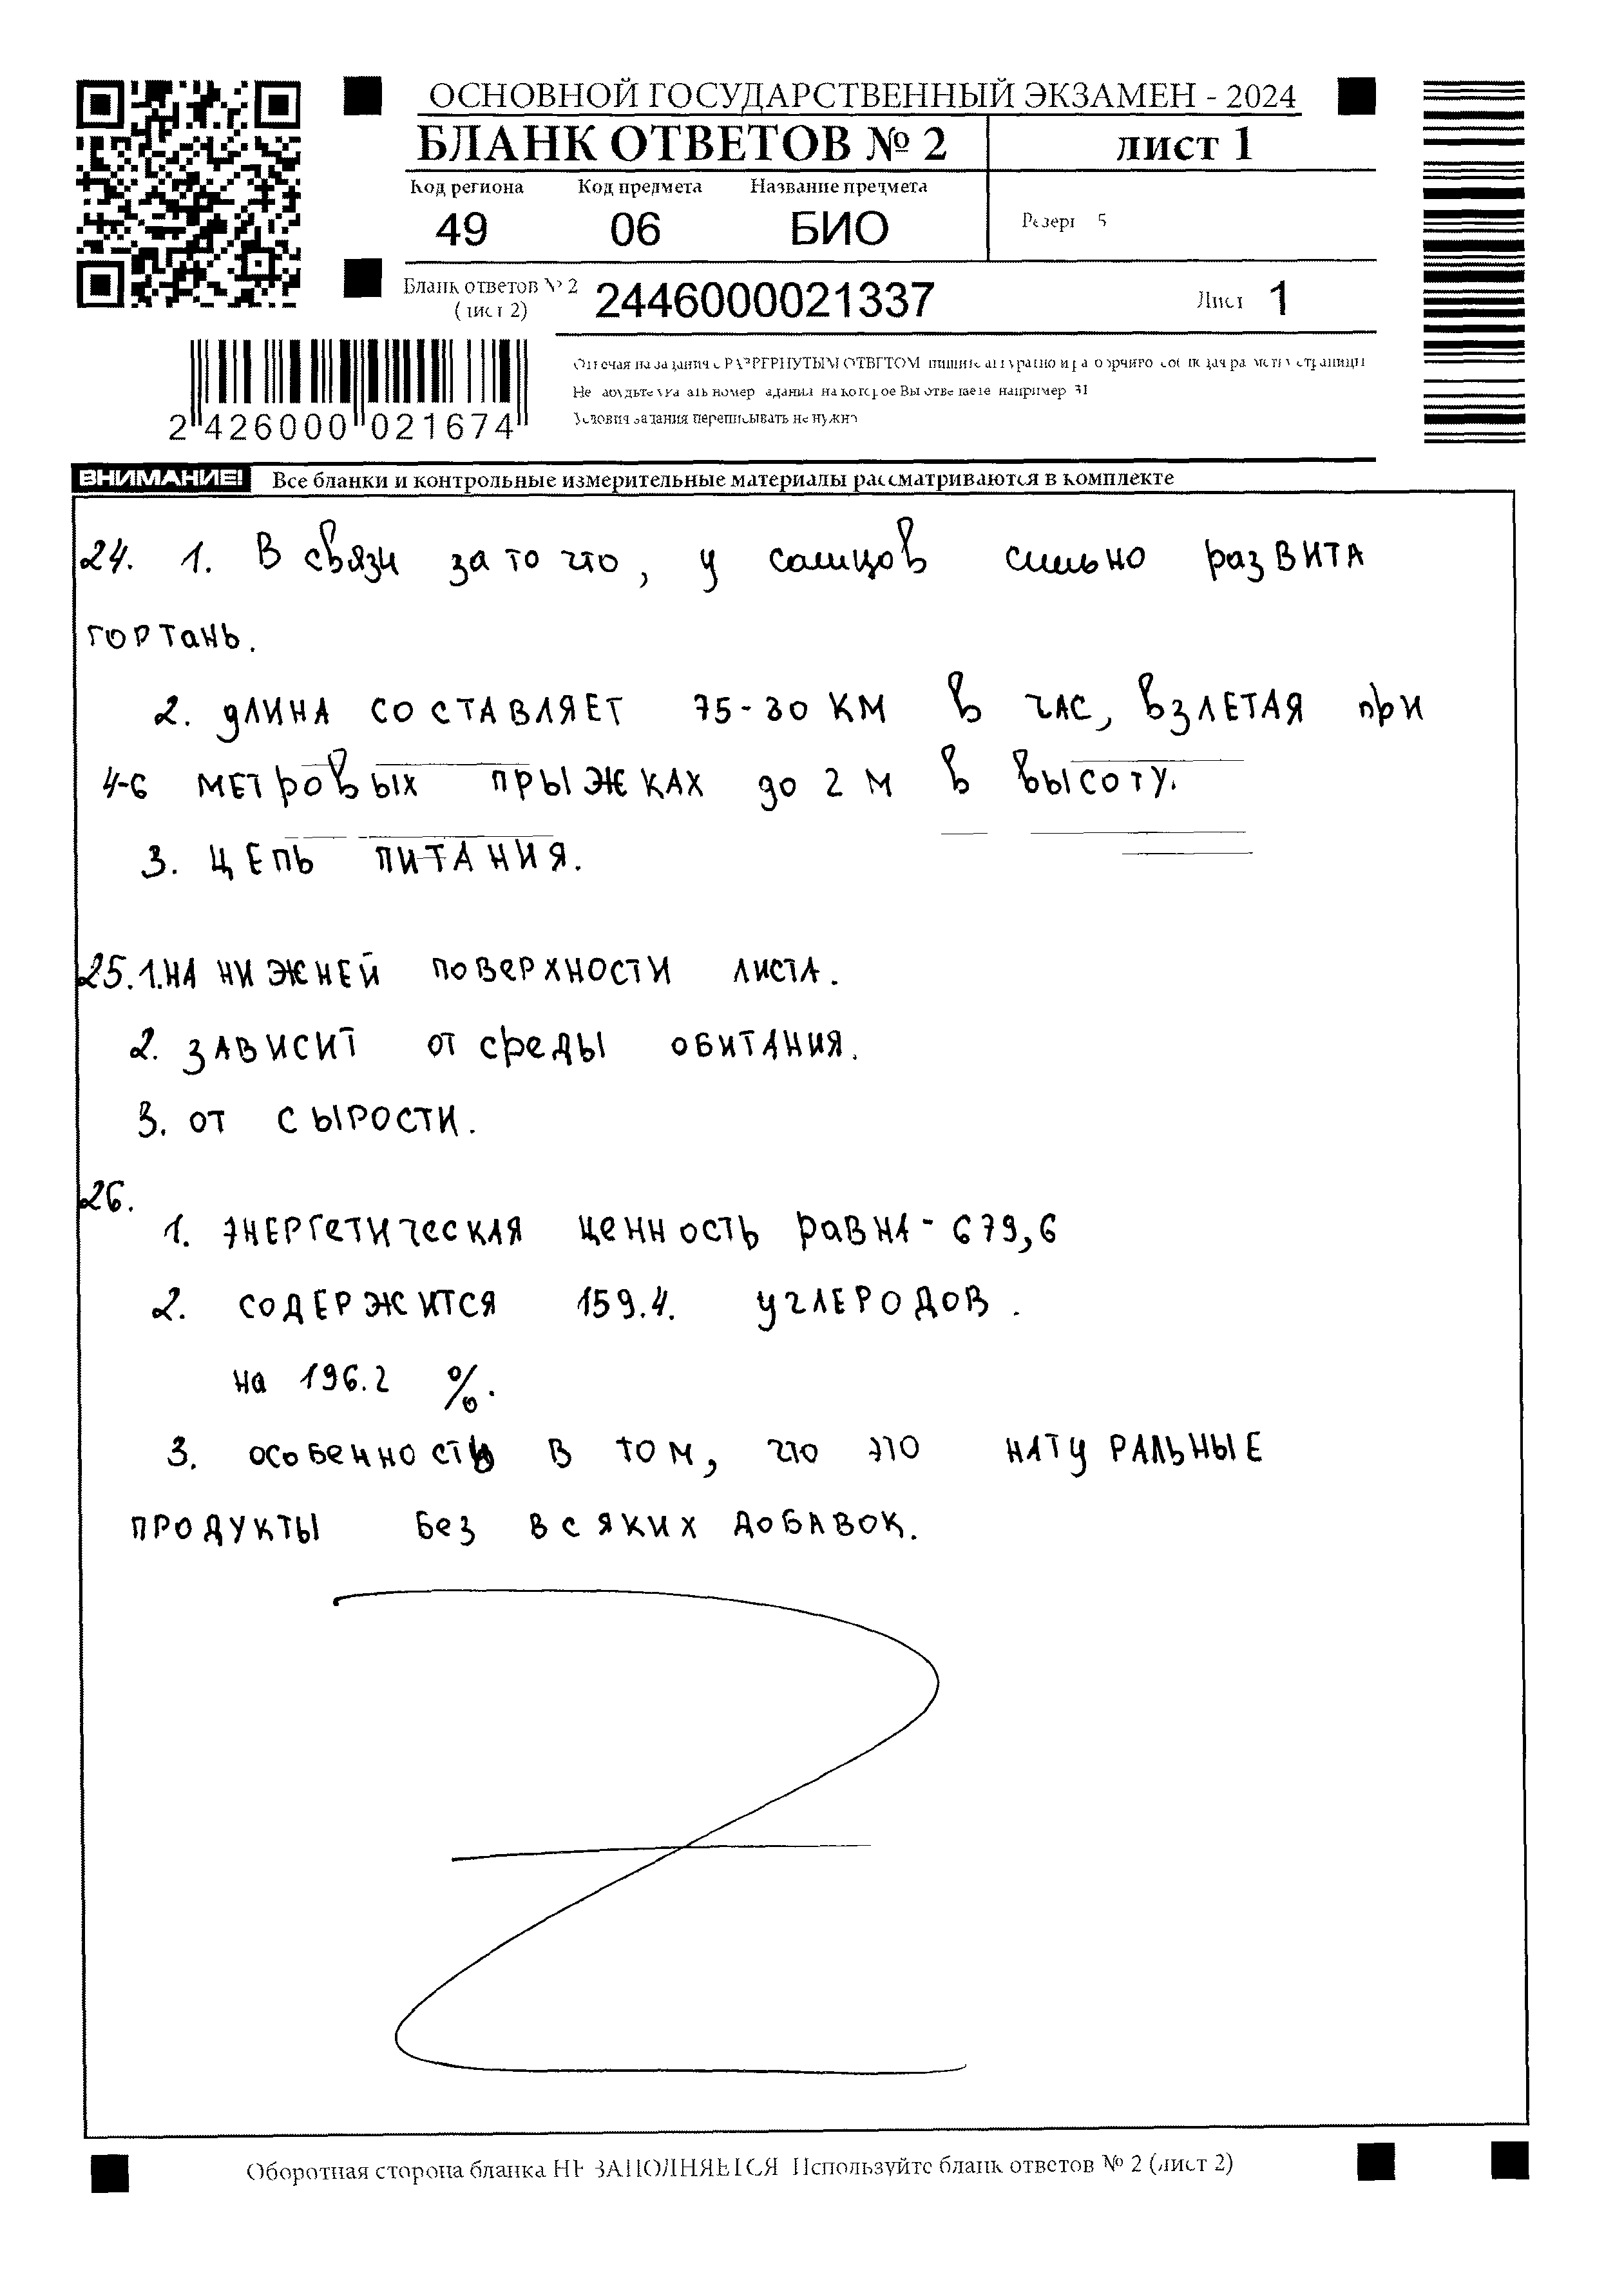 ОСНОВНОЙ ГОСУДАРСТВЕННЫЙ ЭКЗАМЕН - 2024
БЛАНК ОТВЕТОВ № 2 лист 1
Код региона Код предмета Название предмета
49 06 БИО
Резерв 5
Бланк ответов № 2
(лист 2)
2446000021337
Лист 1
2 426000 021674
Отвечая на задания с РАЗВЕРНУТЫМ ОТВЕТОМ пишите аккуратно и разборчиво соблюдая разметку страницы
Не забудьте указать номер задания на которое Вы отвечаете например 31
Условия задания переписывать не нужно
ВНИМАНИЕ! Все бланки и контрольные измерительные материалы рассматриваются в комплекте
24. 1. В связи за то что, у самцов сильно развита
гортань.
2. длина составляет 75-80 км в час, взлетая при
4-6 метровых прыжках до 2 м в высоту.
3. цепь питания.
25.1.на нижней поверхности листа.
2. зависит от среды обитания.
3. от сырости.
26.
1. энергетическая ценность равна - 679,6
2. содержится 159.4. углеродов.
на 196.2 %.
3. особенность в том, что это натуральные
продукты без всяких добавок.
Оборотная сторона бланка НЕ ЗАПОЛНЯЕТСЯ Используйте бланк ответов № 2 (лист 2)